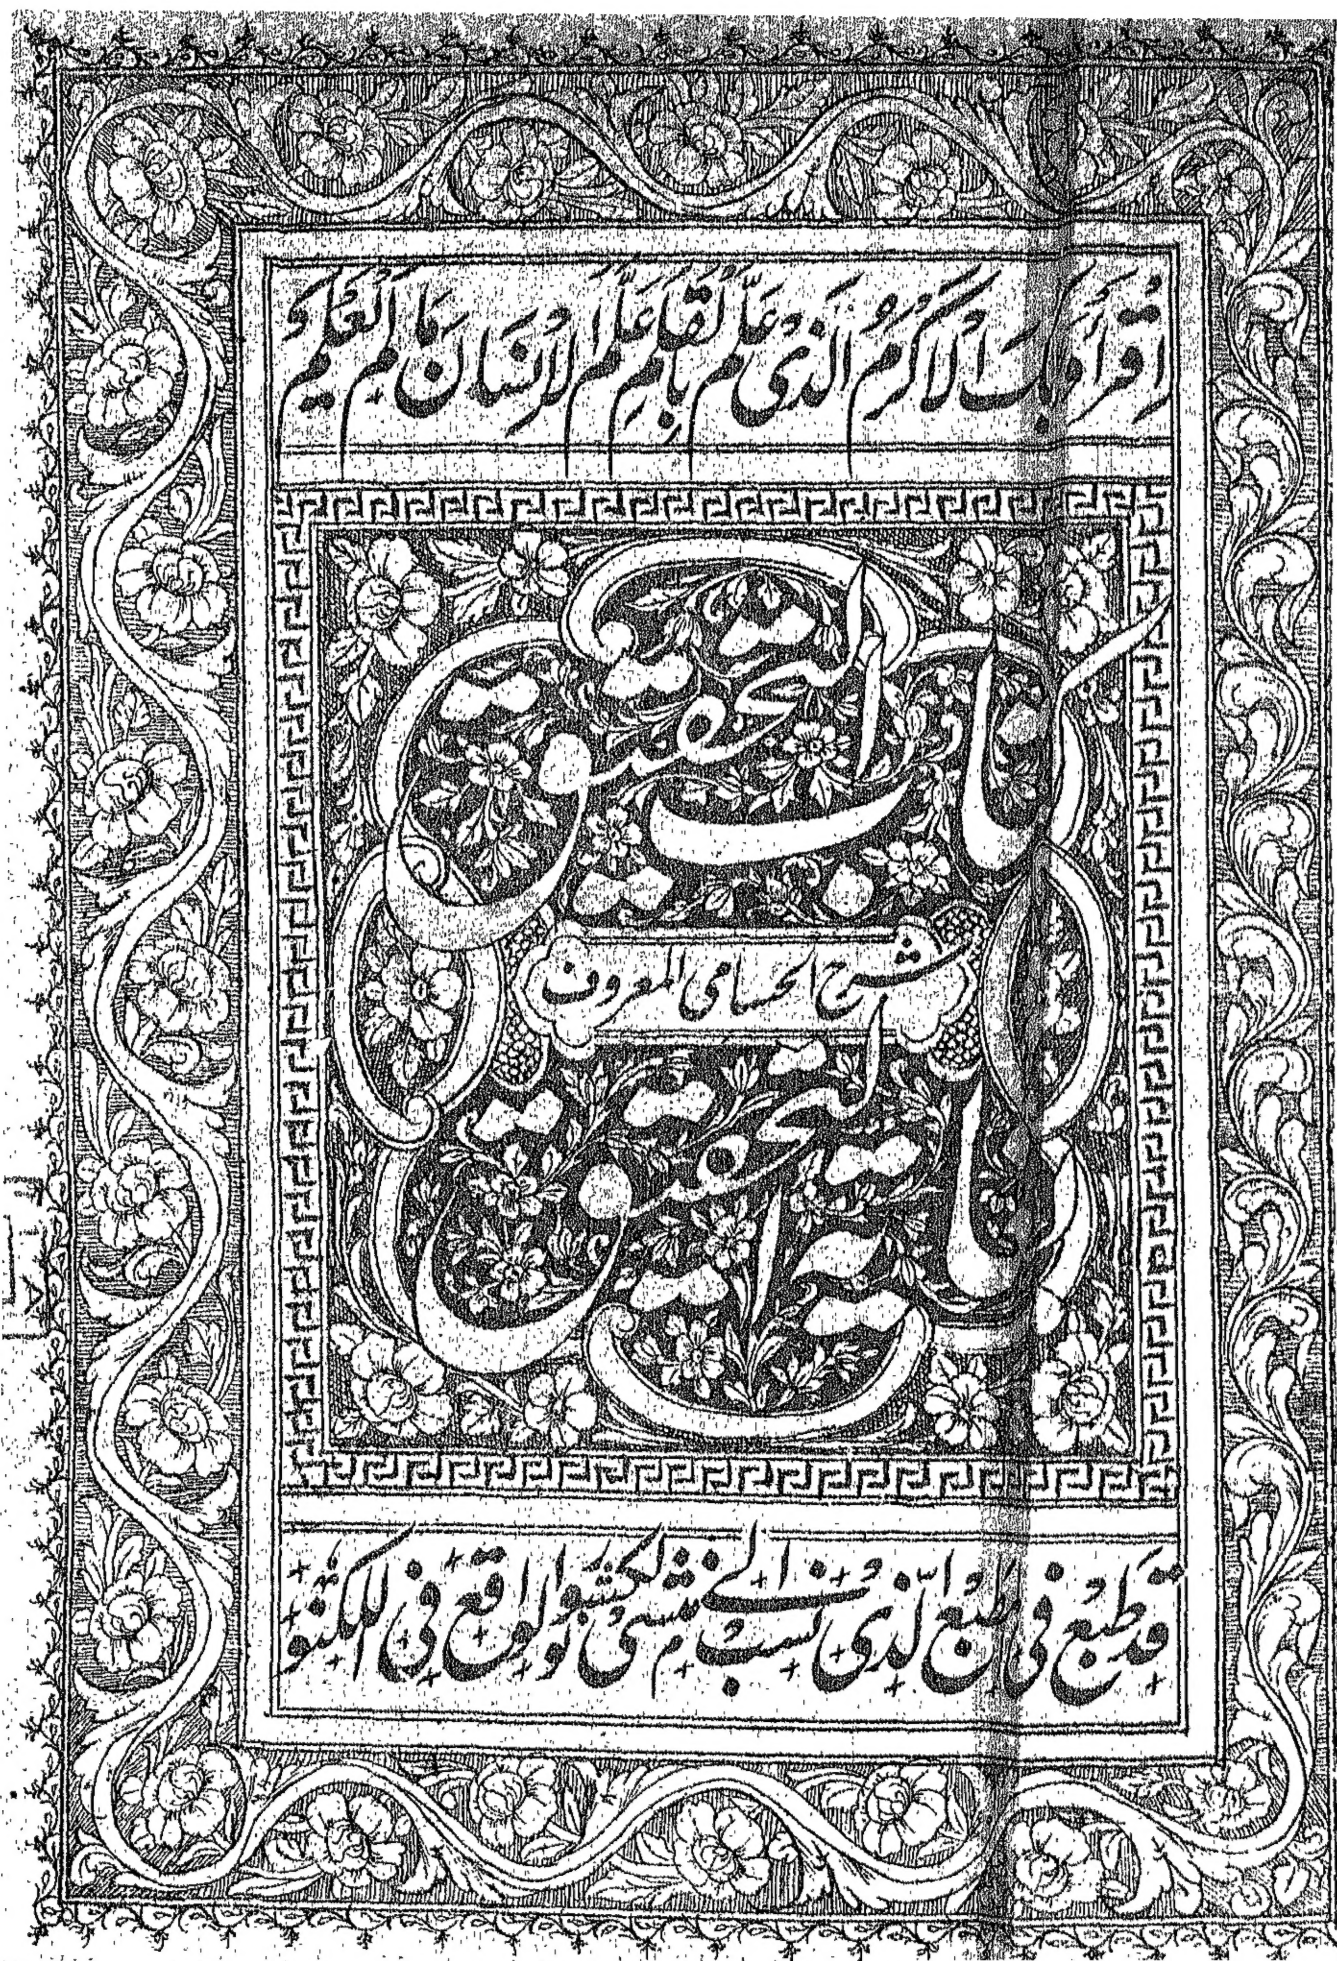 اِقْرَأْ وَرَبُّكَ الْاَكْرَمُ الَّذِىْ عَلَّمَ بِالْقَلَمِ عَلَّمَ الْاِنْسَانَ مَا لَمْ يَعْلَمْ
كتاب التحقيق
شرح الحسامى المعروف
بغاية التحقيق
قد طبع فى المطبع الذى نسب الى منشى نولكشور الواقع فى اللكنو